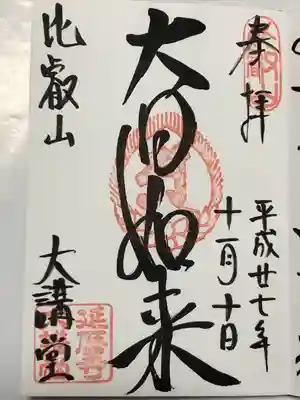 奉拝
平成廿七年
十一月十日
大日如来
比叡山
大講堂
延暦寺